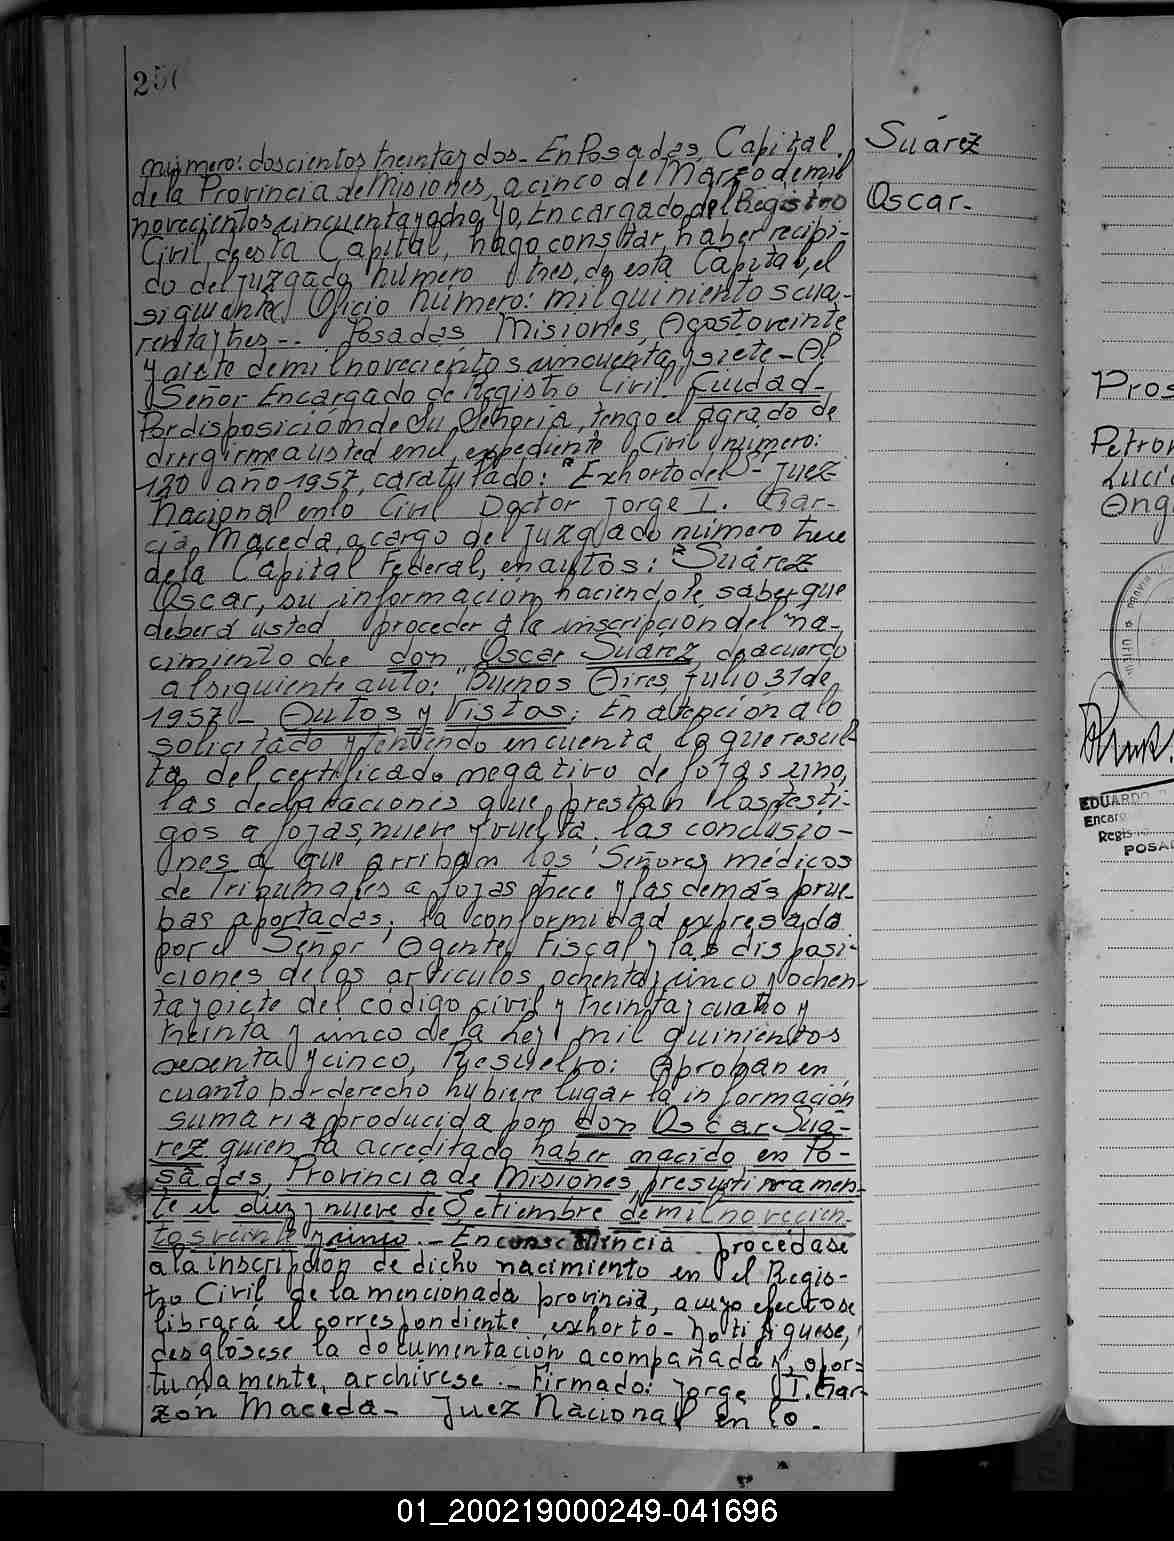 250
Suárez
Oscar.-
número: doscientos treinta y dos.- En Posadas, Capital
de la Provincia de Misiones, a cinco de Marzo de mil
novecientos cincuenta y ocho, Yo, Encargado del Registro
Civil de esta Capital, hago constar haber recibi-
do del juzgado número tres, de esta Capital, el
siguiente Oficio número: mil quinientos cua-
renta y tres -.- Posadas Misiones, Agosto veinte
y siete de mil novecientos cincuenta y siete - Al
Señor Encargado de Registro Civil. Ciudad-
Por disposición de Su Señoría, tengo el agrado de
dirigirme a usted en el expediente Civil número:
120 año 1957, caratulado: "Exhorto del S- Juez
Nacional en lo Civil Doctor Jorge I. Gar-
cía Maceda, a cargo del juzgado número trece
de la Capital Federal, en autos: "Suárez
Oscar, su información, haciendole saber que
deberá usted proceder a la inscripcion del na-
cimiento de don Oscar Suárez, de acuerdo
al siguiente auto: "Buenos Aires, Julio 31 de
1957 - Autos y Vistos; En atención a lo
solicitado y teniendo en cuenta lo que resul-
ta del certificado negativo de fojas uno,
las declaraciones que prestan los testi-
gos a fojas nueve y vuelta, las conclusio-
nes a que arriban los Señores médicos
de Tribunales a fojas trece y las demás prue-
bas aportadas; la conformidad expresada
por el Señor Agente Fiscal y las disposi-
ciones de los artículos ochenta y cinco y ochen-
ta y siete del código civil y treinta y cuatro y
treinta y cinco de la ley mil quinientos
sesenta y cinco, Resuelvo: Aprobar en
cuanto por derecho hubiere lugar la información
sumaria producida por don Oscar Suá-
rez quien ha acreditado haber nacido en Po-
sadas, Provincia de Misiones, presuntivamen-
te el diez y nueve de Setiembre de mil novecien-
tos veinte y cinco.- En consecuencia procédase
a la inscripción de dicho nacimiento en el Regis-
tro Civil de la mencionada provincia, a cuyo efecto se
librará el correspondiente exhorto- Notifíquese,
desglósese la documentación acompañada y, opor-
tunamente, archívese.- Firmado: Jorge I. Gar-
zón Maceda- Juez Nacional en lo.-
Pros
Petron
Luci
Ang
EDUARDO
Encar
Regis
POSAD
01_200219000249-041696